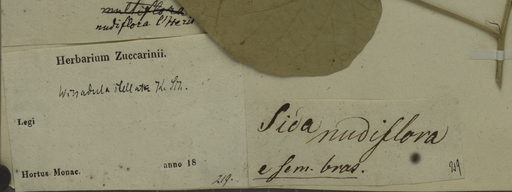 multiflora
nudiflora l'Herit
Herbarium Zuccarinii.
Wissadula stellata K. Sch.
Legi
Hortus Monac. anno 18
219.
Sida nudiflora
e sem. bras.
219